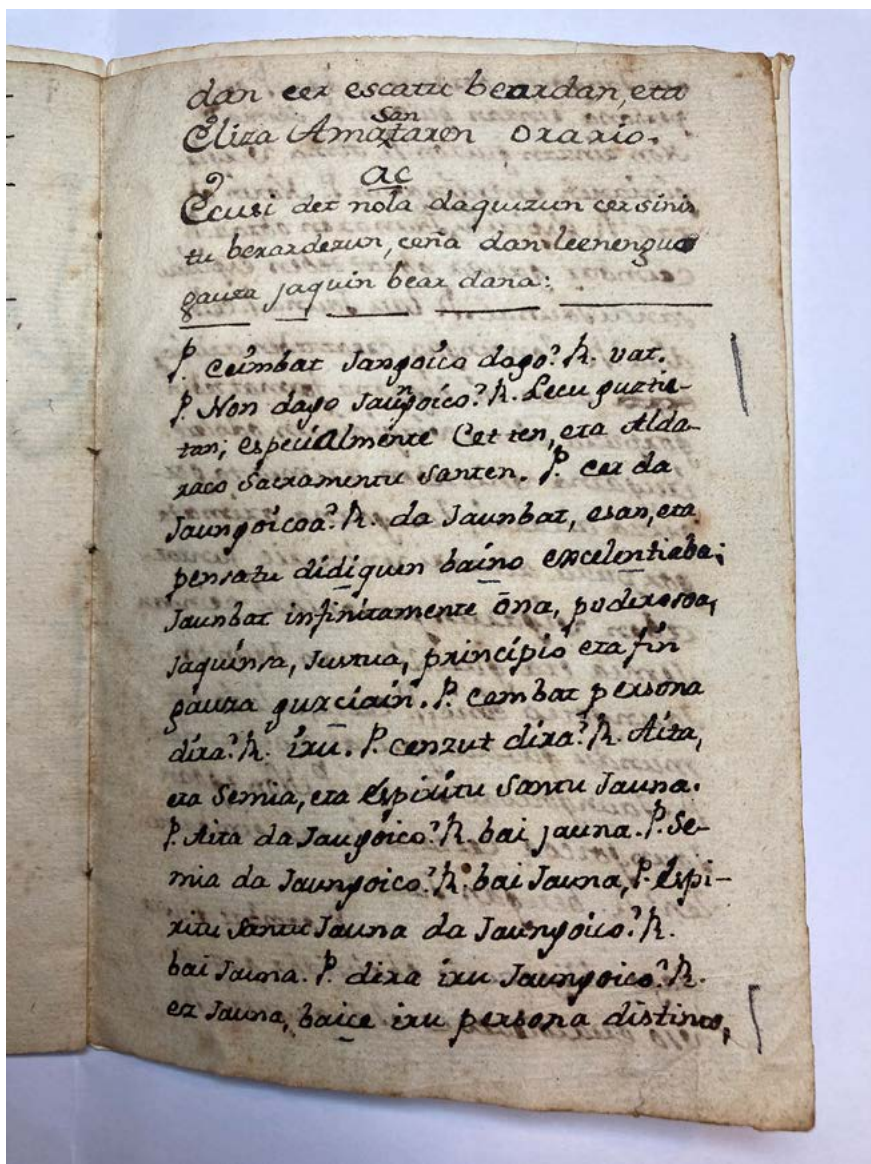 dan cer escatu beardan, eta
San
Eliza Amataren orario.
ac
Ecusi det nola daquizun cer sinis
tu berardezun, ceña dan leenenguo
gauza jaquin bear dana:
P. Ceimbat Jangoico dago? R. vat.
P. Non dago Jaungoico? R. Lecu guztie-
tan, especialmente Cerren, eta Alda-
raco Sacramentu Santen. P. cer da
Jaungoicoa? R. da Jaunbat, esan, eta
pensatu didiquen baino excelentiaba;
Jaunbat infinitamente ōna, poderosoa,
jaquinsa, Justua, principio eta fin
gauza guzciain. P. cembat persona
dira? R. iru. P. cenzut dira? R. Aita,
eta Semia, eta Espiritu Santu Jauna.
P. Aita da Jaugoico? R. bai jauna. P. Se-
mia da Jaungoico? R. bai Jauna, P. Espi-
ritu Santu Jauna da Jaungoico? R.
bai Jauna. P. dira iru Jaungoico? R.
ez Jauna, baice iru persona distinto,